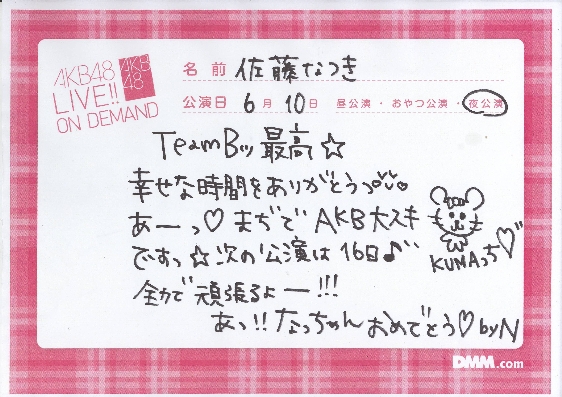 AKB48
LIVE!!
ON DEMAND
AKB
48
名前 佐藤なつき
公演日 6月10日 昼公演・おやつ公演・夜公演
TeamBッ最高☆
幸せな時間をありがとうっ
あーっ♡まぢでAKB大スキ
ですっ☆次の公演は16日♪
全力で頑張るよー!!!
あっ!!なっちゃんおめでとう♡byN
KUMAっち♡
DMM.com